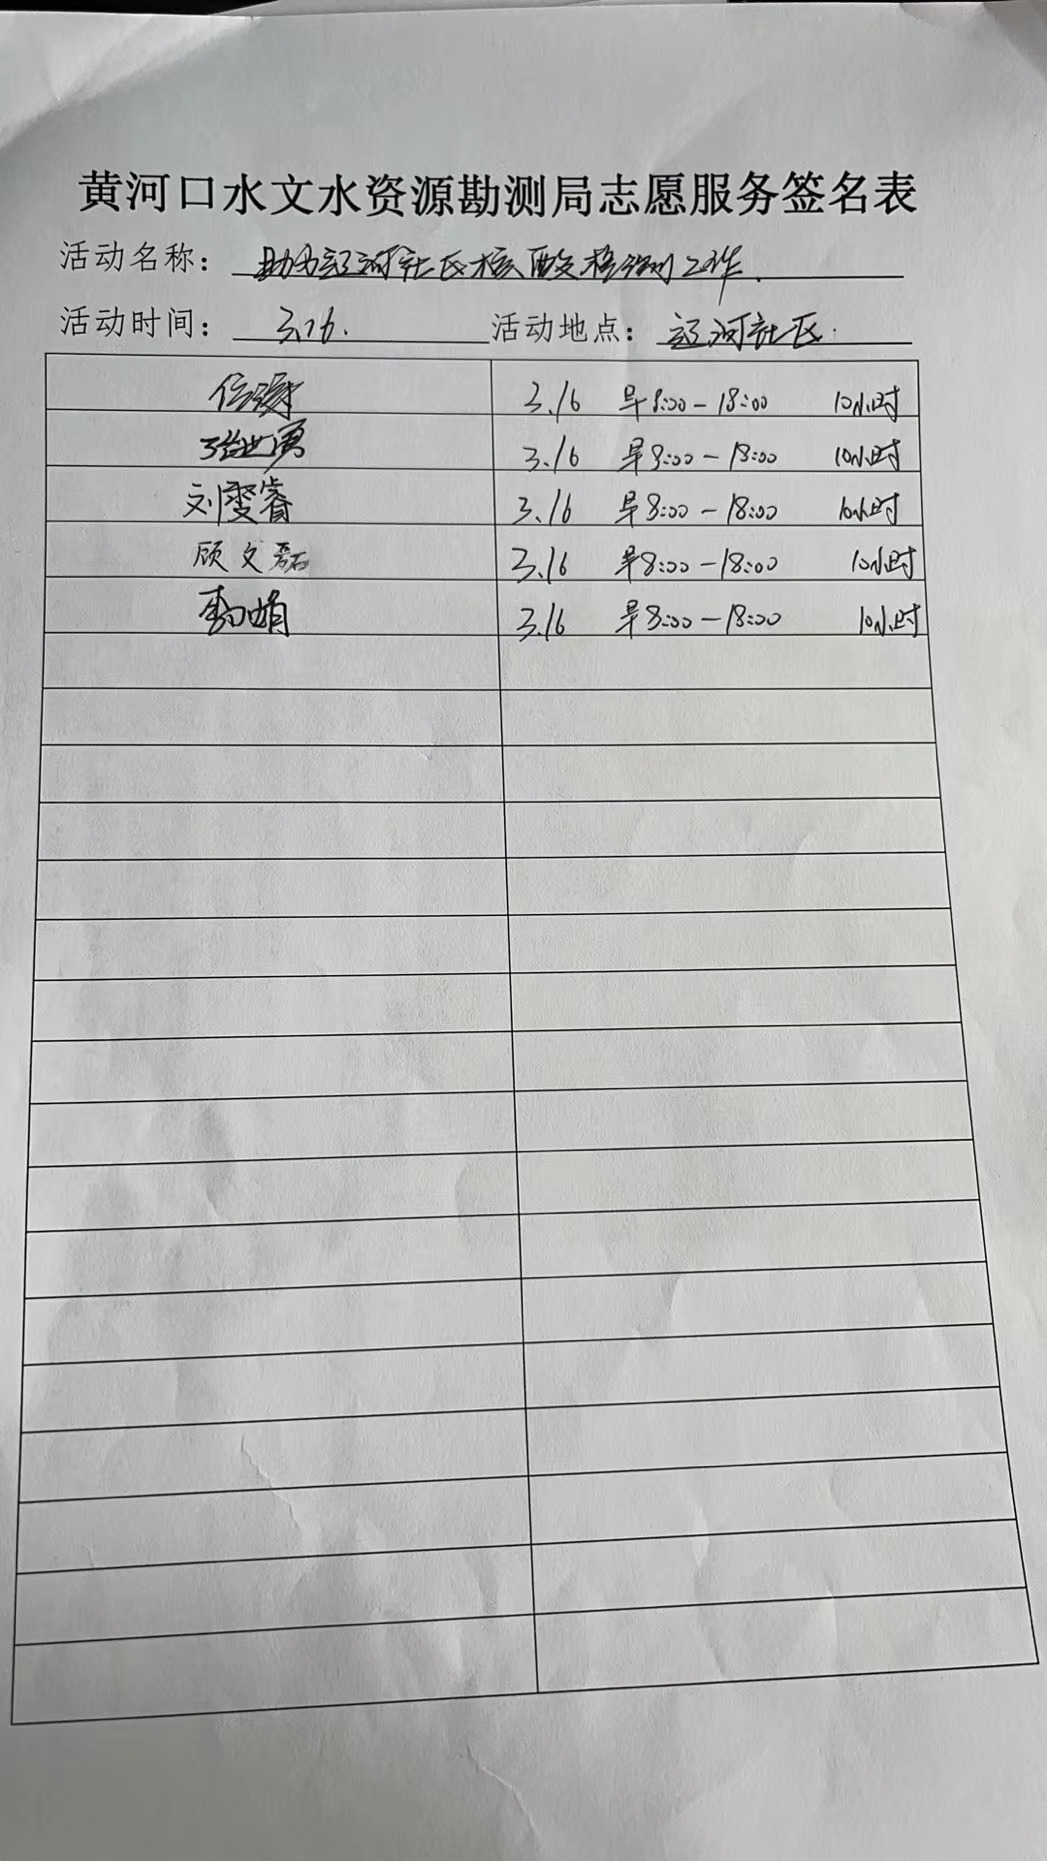 黄河口水文水资源勘测局志愿服务签名表
活动名称：助力辽河社区核酸检测工作.
活动时间：3.16. 活动地点：辽河社区.
3.16 早8:00-18:00 10小时
3.16 早8:00-18:00 10小时
刘雯睿 3.16 早8:00-18:00 10小时
顾文磊 3.16 早8:00-18:00 10小时
3.16 早8:00-18:00 10小时